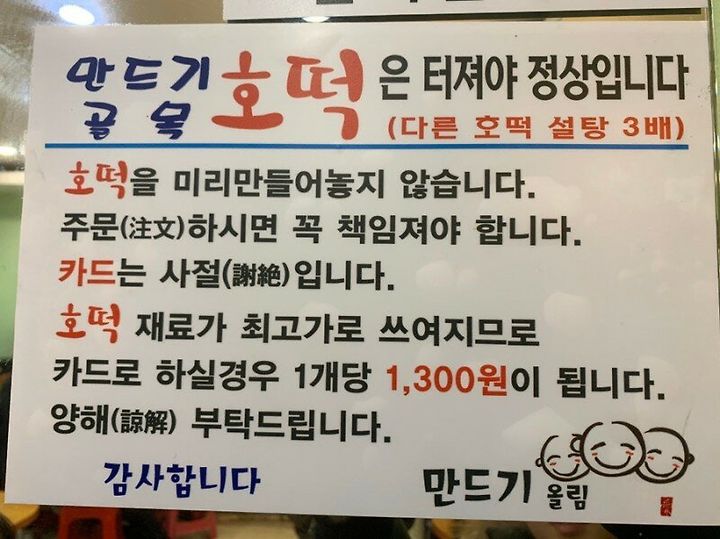 만드기
골목 호떡은 터져야 정상입니다
(다른 호떡 설탕 3배)
호떡을 미리만들어놓지 않습니다.
주문(注文)하시면 꼭 책임져야 합니다.
카드는 사절(謝絶)입니다.
호떡 재료가 최고가로 쓰여지므로
카드로 하실경우 1개당 1,300원이 됩니다.
양해(諒解) 부탁드립니다.
감사합니다
만드기 올림